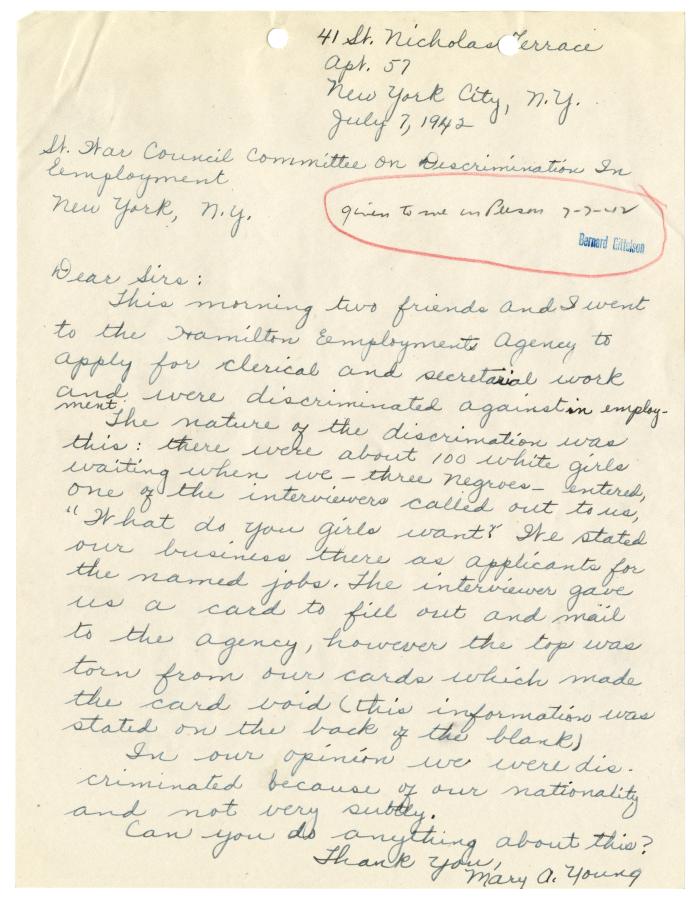 41 St. Nicholas Terrace
Apt. 57
New York City, N.Y.
July 7, 1942
St. War Council Committee on Discrimination In
Employment
New York, N.Y.
given to me in Person 7-7-42
Bernard Gittelson
Dear Sirs:
This morning two friends and I went
to the Hamilton Employments Agency to
apply for clerical and secretarial work
and were discriminated against in employ-
ment.
The nature of the discrimation was
this: there were about 100 white girls
waiting when we - three Negroes - entered,
one of the interviewers called out to us,
"What do you girls want? We stated
our business there as applicants for
the named jobs. The interviewer gave
us a card to fill out and mail
to the agency, however the top was
torn from our cards which made
the card void (this information was
stated on the back of the blank)
In our opinion we were dis-
criminated because of our nationality
and not very subtly.
Can you do anything about this?
Thank you,
Mary A. Young